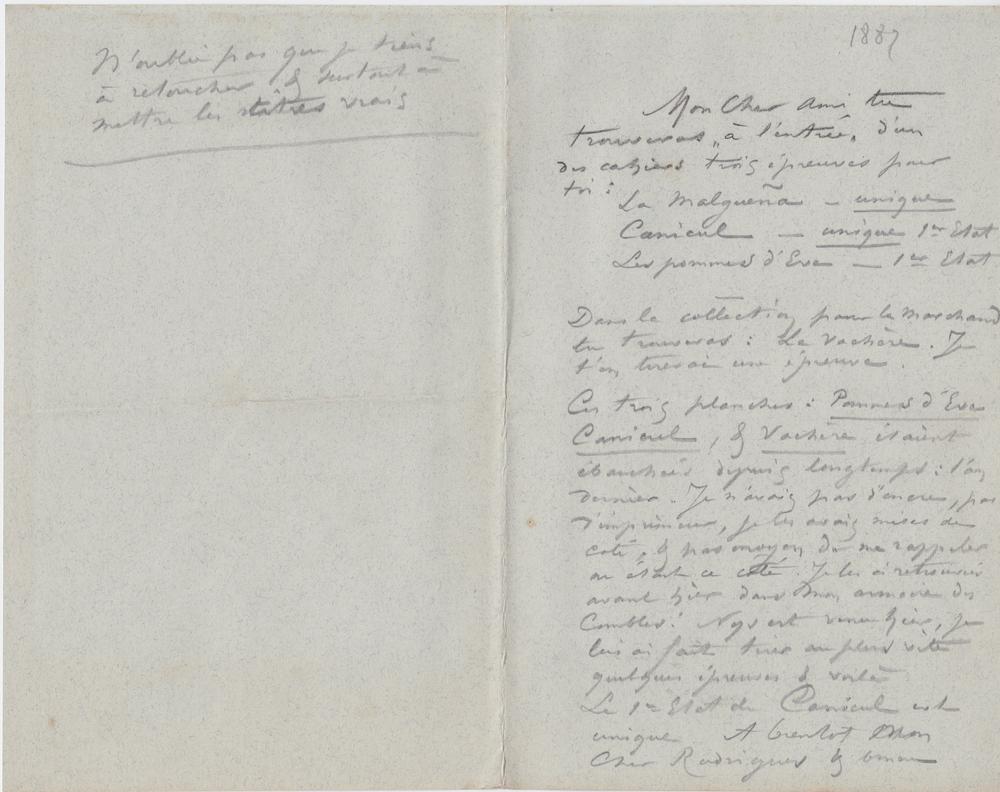 N'oublie pas que je tiens
à retoucher & surtout à
mettre les titres vrais
1887
Mon Cher ami tu
trouveras „à l'entrée„ d'un
des cahiers trois épreuves pour
toi :
La Malgueña — unique
Canicul — unique 1er Etat
Les pommes d'Eve — 1er Etat
Dans la collection pour le Marchand
tu trouveras : La Vachère. Je
t'en tirerai une épreuve.
Ces trois planches : Pommes d'Eve
Canicul, & Vachère étaient
ébauchées depuis longtemps : l'an
dernier. Je n'avais pas d'encre, pas
d'imprimeur, je les avais mises de
coté, & pas moyen de me rappeler
où était ce côté. Je les ai retrouvées
avant hier dans mon armoire des
Combles! Nys est venu hier, je
lui ai fait tirer au plus vite
quelques épreuves & voilà
Le 1er Etat de Canicul est
unique A bientot Mon
Cher Rodrigues &